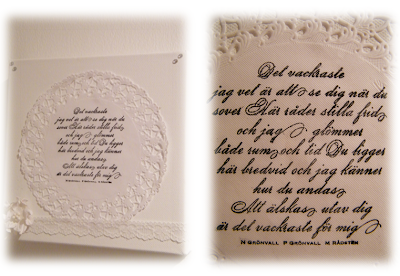 Det vackraste
jag vet är att se dig när du
sover Här råder stilla frid
och jag glömmer
både rum och tid Du ligger
här bredvid och jag känner
hur du andas
Att älskas utav dig
är det vackraste för mig
N GRÖNVALL P GRÖNVALL M RÅDSTEN
Det vackraste
jag vet är att se dig när du
sover Här råder stilla frid
och jag glömmer
både rum och tid Du ligger
här bredvid och jag känner
hur du andas
Att älskas utav dig
är det vackraste för mig